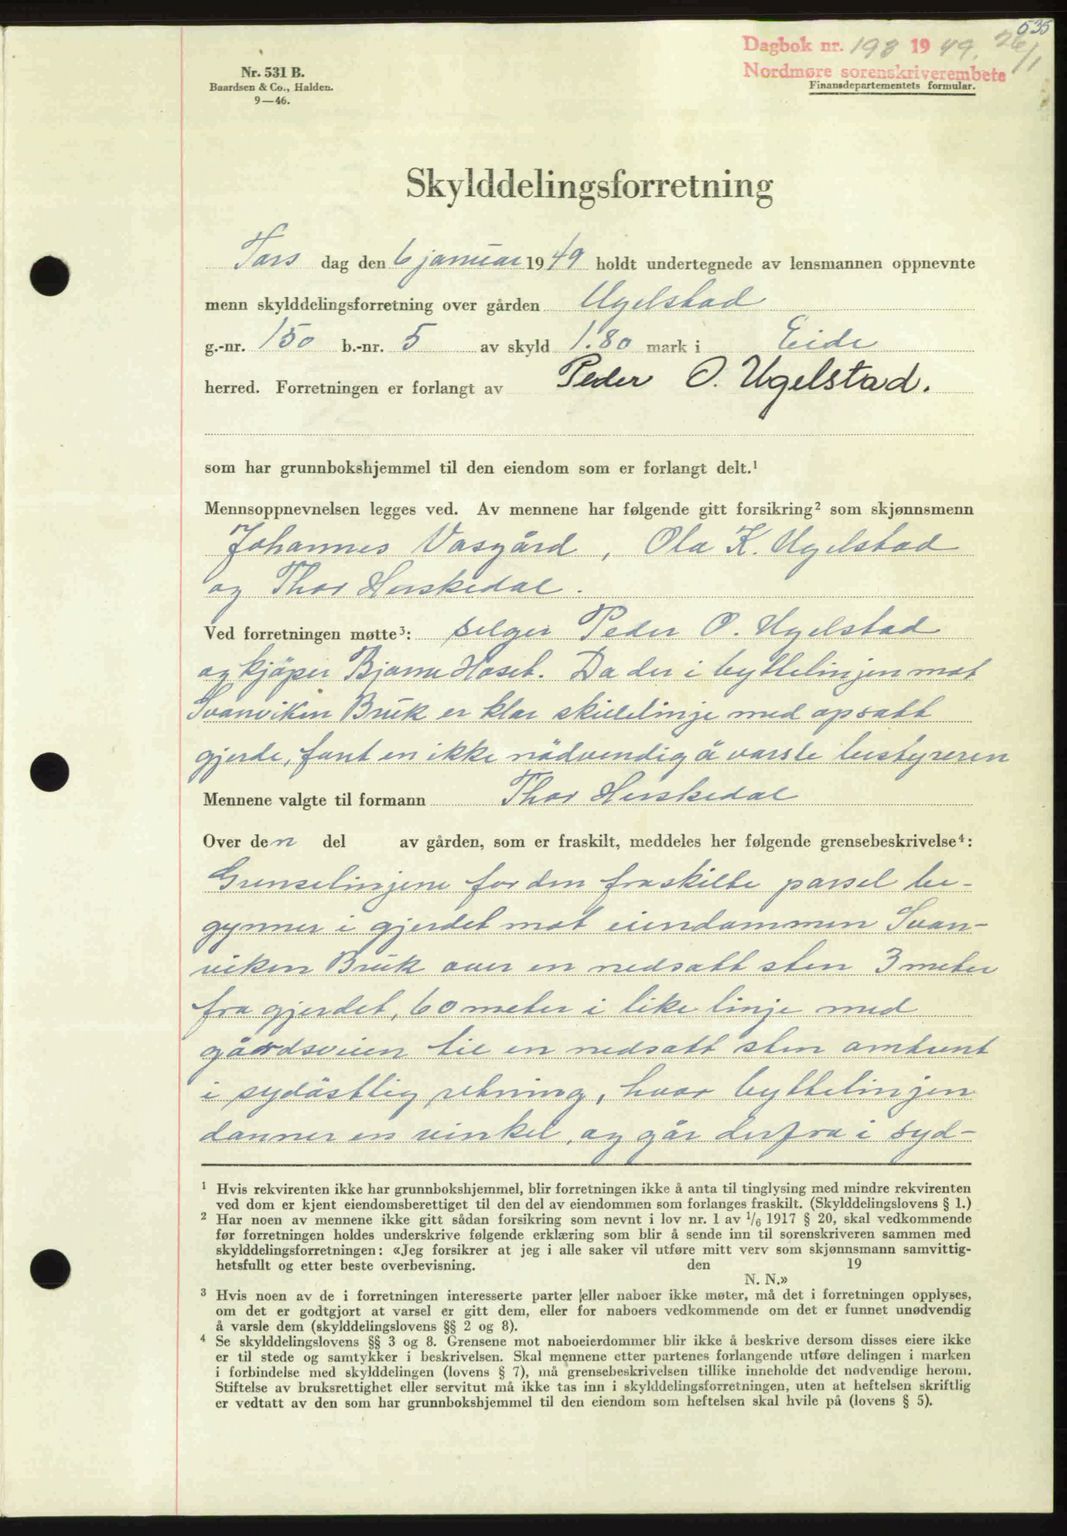 535
Dagbok nr. 198 1949. 26/1
Nordmøre sorenskriverembete
Nr. 531 B.
Baardsen & Co., Halden.
9—46.
Finansdepartementets formular.
Skylddelingsforretning
Tors dag den 6 januar 1949 holdt undertegnede av lensmannen oppnevnte
menn skylddelingsforretning over gården Ugelstad
g.-nr. 150 b.-nr. 5 av skyld 1.80 mark i Eide
herred. Forretningen er forlangt av Peder O. Ugelstad.
som har grunnbokshjemmel til den eiendom som er forlangt delt.¹
Mennsoppnevnelsen legges ved. Av mennene har følgende gitt forsikring² som skjønnsmenn
Johannes Vasgård, Ola K. Ugelstad
og Thor Herskedal.
Ved forretningen møtte³: selger Peder O. Ugelstad
og kjøper Bjarne Haset. Da der i byttelinjen mot
Svanviken Bruk er klar skillelinje med opsatt
gjerde, fant en ikke nödvendig å varsle bestyreren
Mennene valgte til formann Thor Herskedal
Over den del av gården, som er fraskilt, meddeles her følgende grensebeskrivelse⁴:
Grenselinjene for den fraskilte parsel be-
gynner i gjerdet mot eiendommen Svan-
viken Bruk over en nedsatt sten 3 meter
fra gjerdet, 60 meter i like linje med
gårdsveien til en nedsatt sten omtrent
i sydöstlig retning, hvor byttelinjen
danner en vinkel, og går derfra i syd-
¹ Hvis rekvirenten ikke har grunnbokshjemmel, blir forretningen ikke å anta til tinglysing med mindre rekvirenten
ved dom er kjent eiendomsberettiget til den del av eiendommen som forlanges fraskilt. (Skylddelingslovens § 1.)
² Har noen av mennene ikke gitt sådan forsikring som nevnt i lov nr. 1 av 1/6 1917 § 20, skal vedkommende
før forretningen holdes underskrive følgende erklæring som blir å sende inn til sorenskriveren sammen med
skylddelingsforretningen: «Jeg forsikrer at jeg i alle saker vil utføre mitt verv som skjønnsmann samvittig-
hetsfullt og etter beste overbevisning. den 19
N. N.»
³ Hvis noen av de i forretningen interesserte parter eller naboer ikke møter, må det i forretningen opplyses,
om det er godtgjort at varsel er gitt dem, eller for naboers vedkommende om det er funnet unødvendig
å varsle dem (skylddelingslovens §§ 2 og 8).
⁴ Se skylddelingslovens §§ 3 og 8. Grensene mot naboeierdommer blir ikke å beskrive dersom disses eiere ikke
er til stede og samtykker i beskrivelsen. Skal mennene etter partenes forlangende utføre delingen i marken
i forbindelse med skylddelingen (lovens § 7), må grensebeskrivelsen tillike inneholde det nødvendige herom.
Stiftelse av bruksrettighet eller servitut må ikke tas inn i skylddelingsforretningen, uten at heftelsen skriftlig
er vedtatt av den som har grunnbokshjemmel til den eiendom som heftelsen skal hvile på (lovens § 5).